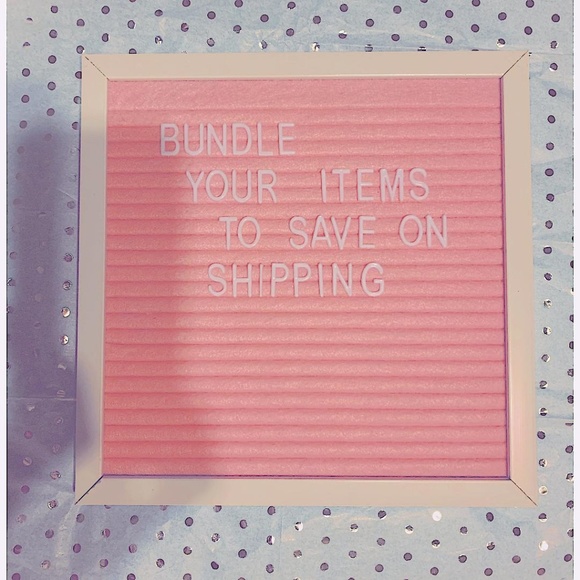 BUNDLE
YOUR ITEMS
TO SAVE ON
SHIPPING